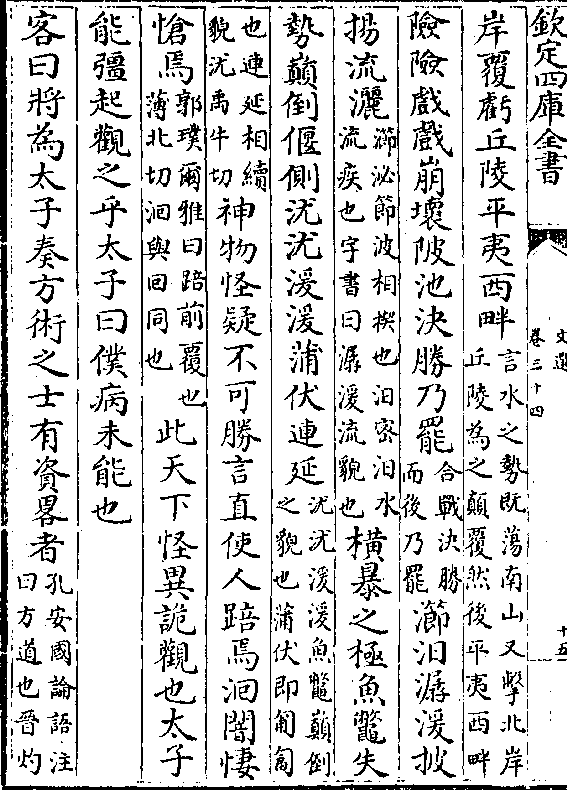 欽定四庫全書
文選
卷三十四
十五
岸覆虧丘陵平夷西畔言水之勢既蕩南山又擊北岸丘陵為之顛覆然後平夷西畔
險險戲戲崩壞陂池決勝乃罷合戰決勝而後乃罷㵧汩潺湲披
揚流灑㵧泌節波相揳也汩密汩水流疾也字書曰潺湲流貌也橫暴之極魚鼈失
勢顛倒偃側沋沋湲湲蒲伏連延沋沋湲湲魚鼈顛倒之貌也蒲伏即匍匐
也連延相續貌沋禹牛切神物怪疑不可勝言直使人踣焉洄闇悽
愴焉郭璞爾雅曰踣前覆也薄北切洄與回同也此天下怪異詭觀也太子
能彊起觀之乎太子曰僕病未能也
客曰將為太子奏方術之士有資畧者孔安國論語注曰方道也晉灼